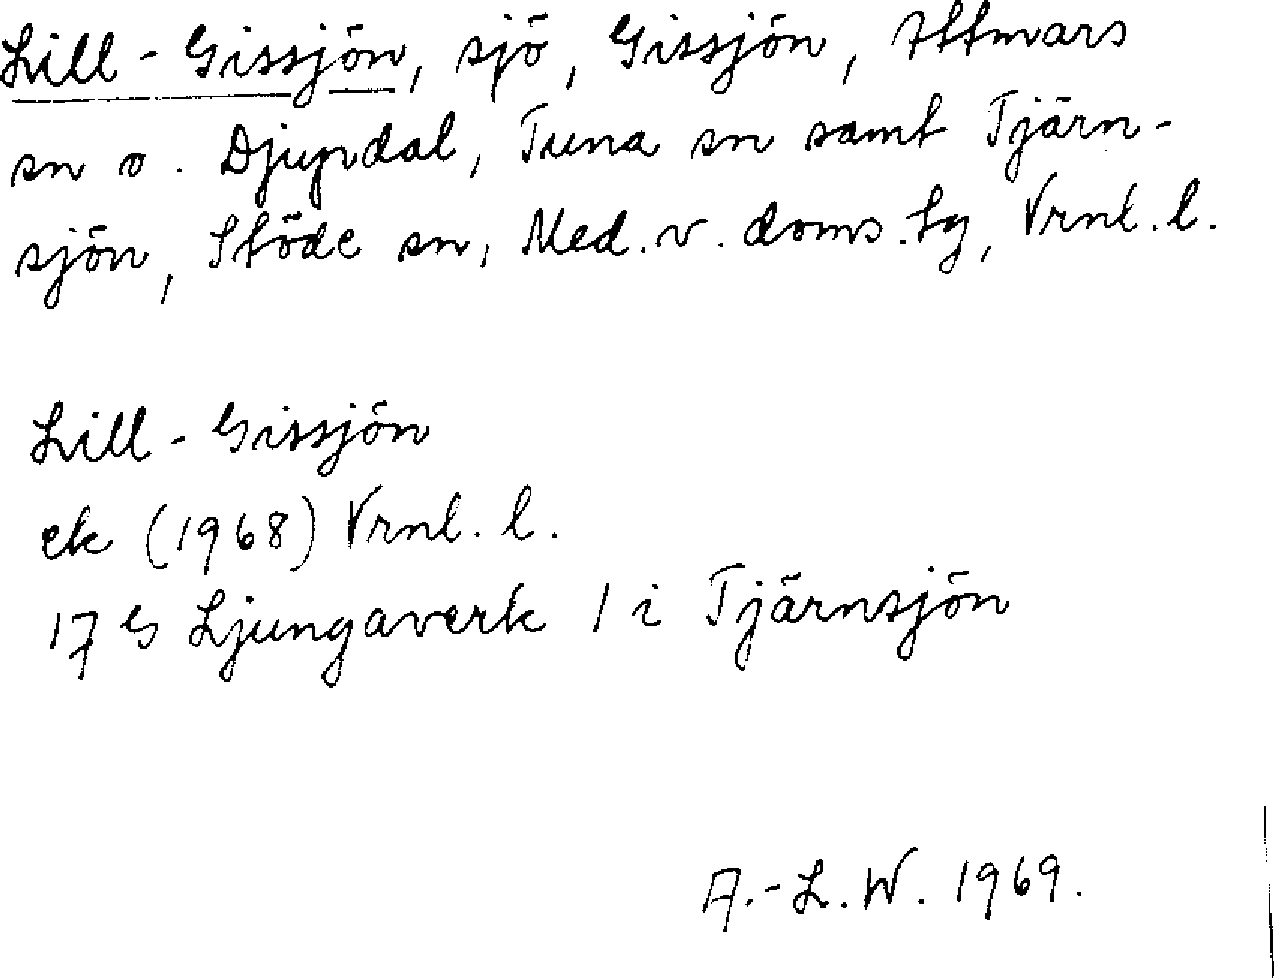 Lill-Gissjön, sjö, Gissjön, Attmars
sn o. Djupdal, Tuna sn samt Tjärn-
sjön, Stöde sn, Med. v. doms. tg, Vrnl. l.
Lill-Gissjön
ek (1968) Vrnl. l.
17 G Ljungaverk 1 i Tjärnsjön
A.-L.W. 1969.